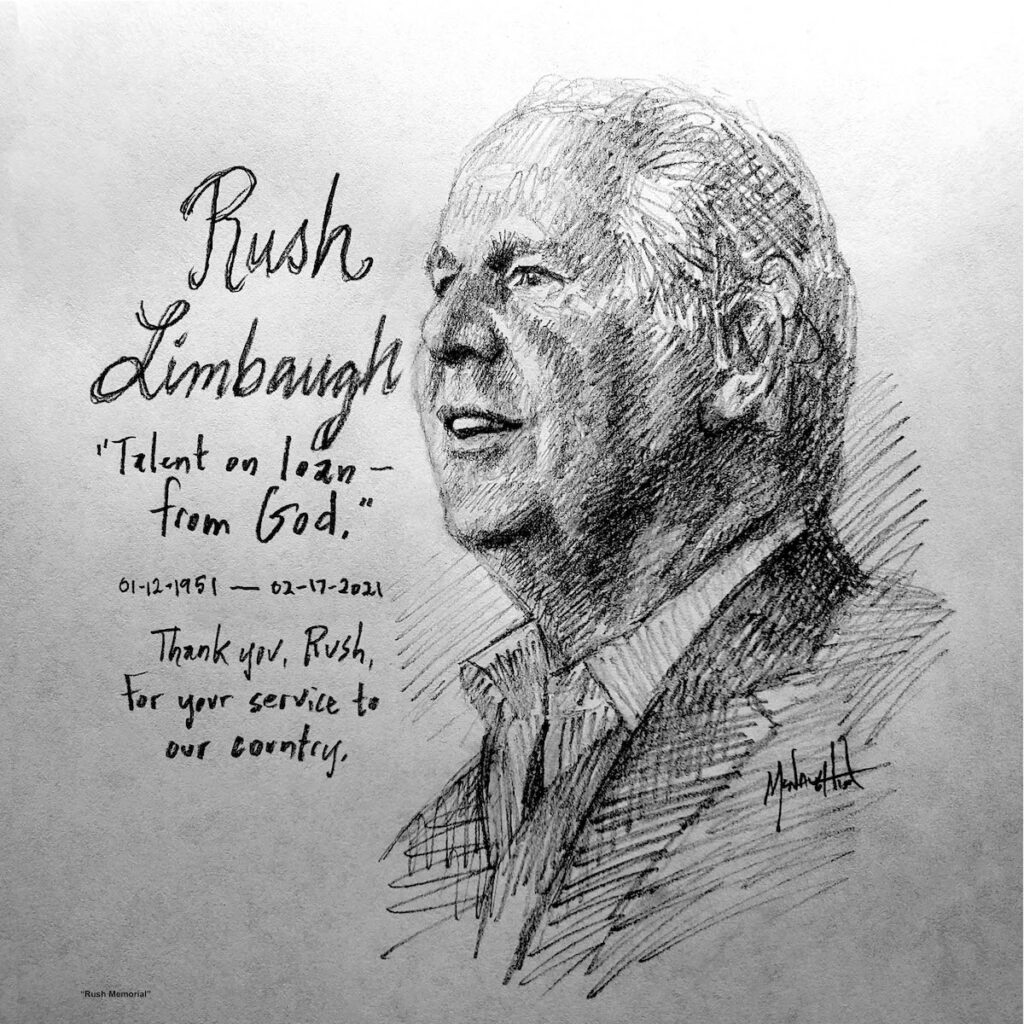 Rush
Limbaugh
"Talent on loan —
from God."
01-12-1951 — 02-17-2021
Thank you, Rush,
For your service to
our country.
McNaughton
"Rush Memorial"